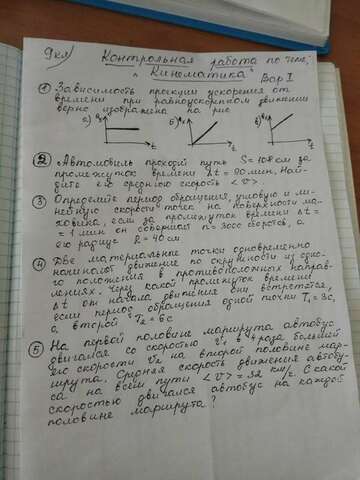 9кл Контрольная работа по теме,
„Кинематика". Вар I
① Зависимость проекции ускорения от
времени при равноускоренном движении
верно изображена на рис
а) б) в)
t t t
② Автомобиль проходит путь S = 108 км за
промежуток времени Δt = 90 мин, Най-
дите его среднюю скорость <v>
③ Определите период обращения, угловую и ли-
нейную скорости точек на поверхности ма-
ховика, если за промежуток времени Δt =
= 1 мин он совершает n = 3000 оборотов, а
его радиус R = 40 см
④ Две материальные точки одновременно
начинают движение по окружности из одно-
го положения в противоположных направ-
лениях. Через какой промежуток времени
Δt от начала движения они встретятся,
если период обращения одной точки T₁ = 3с,
а второй T₂ = 6с
⑤ На первой половине маршрута автобус
двигался со скоростью v₁ в 4 раза большей
его скорости v₂ на второй половине мар-
шрута. Средняя скорость движения автобу-
са на всем пути <v> = 32 км/ч. С какой
скоростью двигался автобус на каждой
половине маршрута?